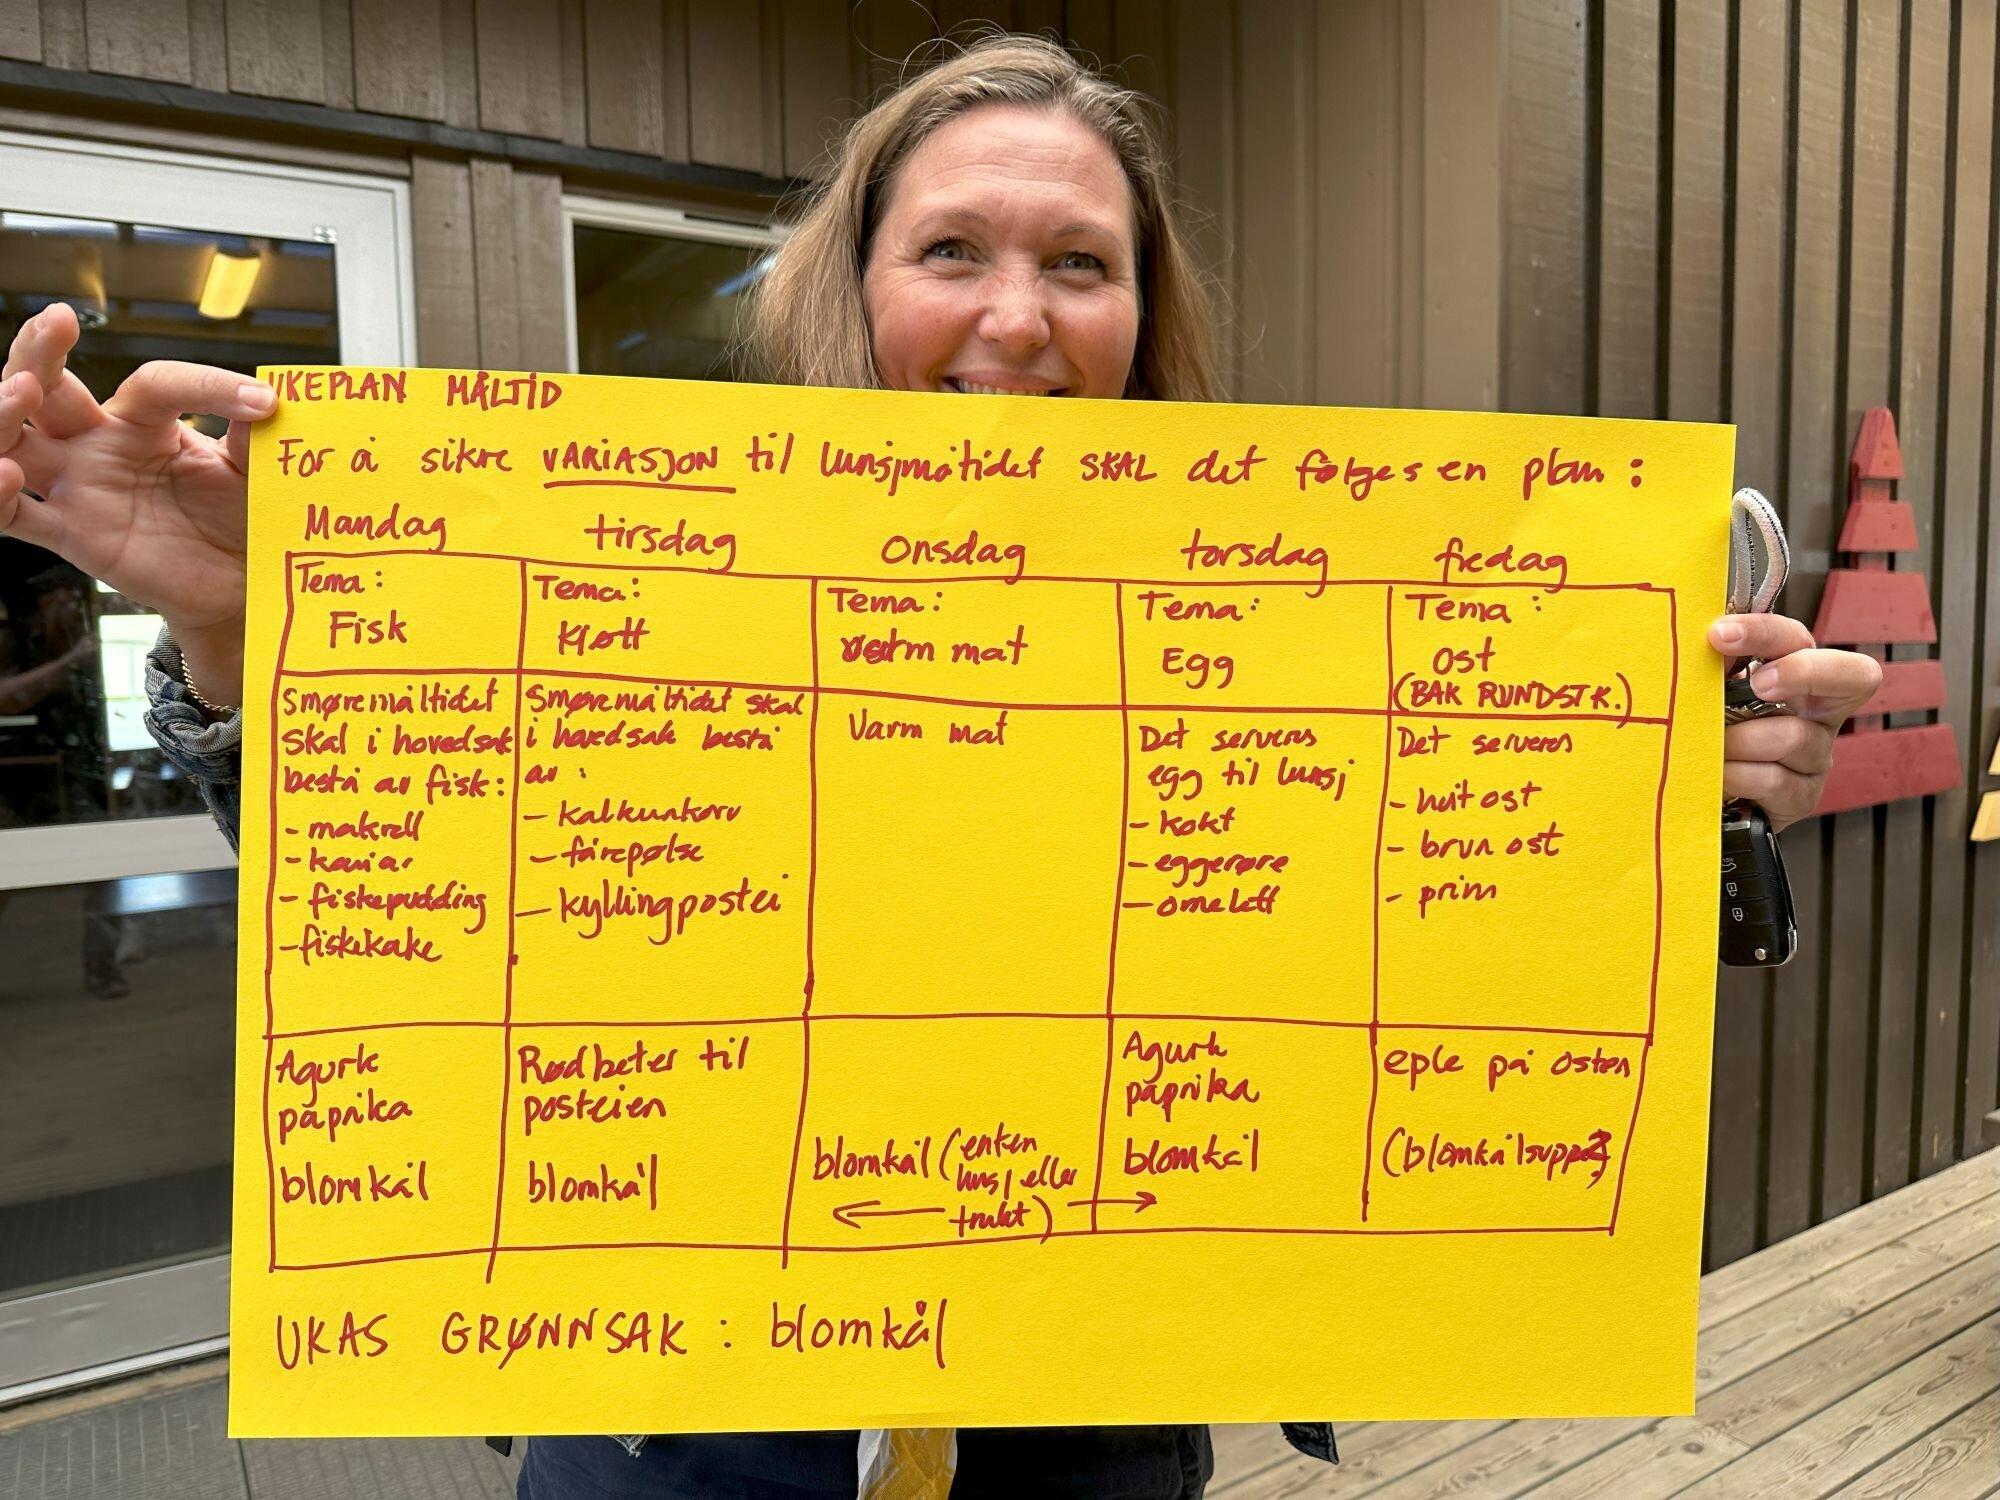 UKEPLAN MÅLTID
For å sikre VARIASJON til lunsjmåtidet SKAL det følges en plan :
Mandag
Tema :
Fisk
Smøremåltidet
skal i hovedsak
bestå av fisk :
- makrell
- kaviar
- fiskepudding
- fiskekake
Agurk
paprika
blomkål
tirsdag
Tema :
Kjøtt
Smøremåltidet skal
i hovedsak bestå
av :
- kalkunkorv
- fårepølse
- kyllingpostei
Rødbeter til
posteien
blomkål
onsdag
Tema :
varm mat
Varm mat
blomkål (enten
lunsj eller
frukt)
torsdag
Tema :
Egg
Det serveres
egg til lunsj
- kokt
- eggerøre
- omelett
Agurk
paprika
blomkål
fredag
Tema :
Ost
(BAK RUNDSTK.)
Det serveres
- hvit ost
- brun ost
- prim
eple på osten
(blomkålsuppe?)
UKAS GRØNNSAK : blomkål